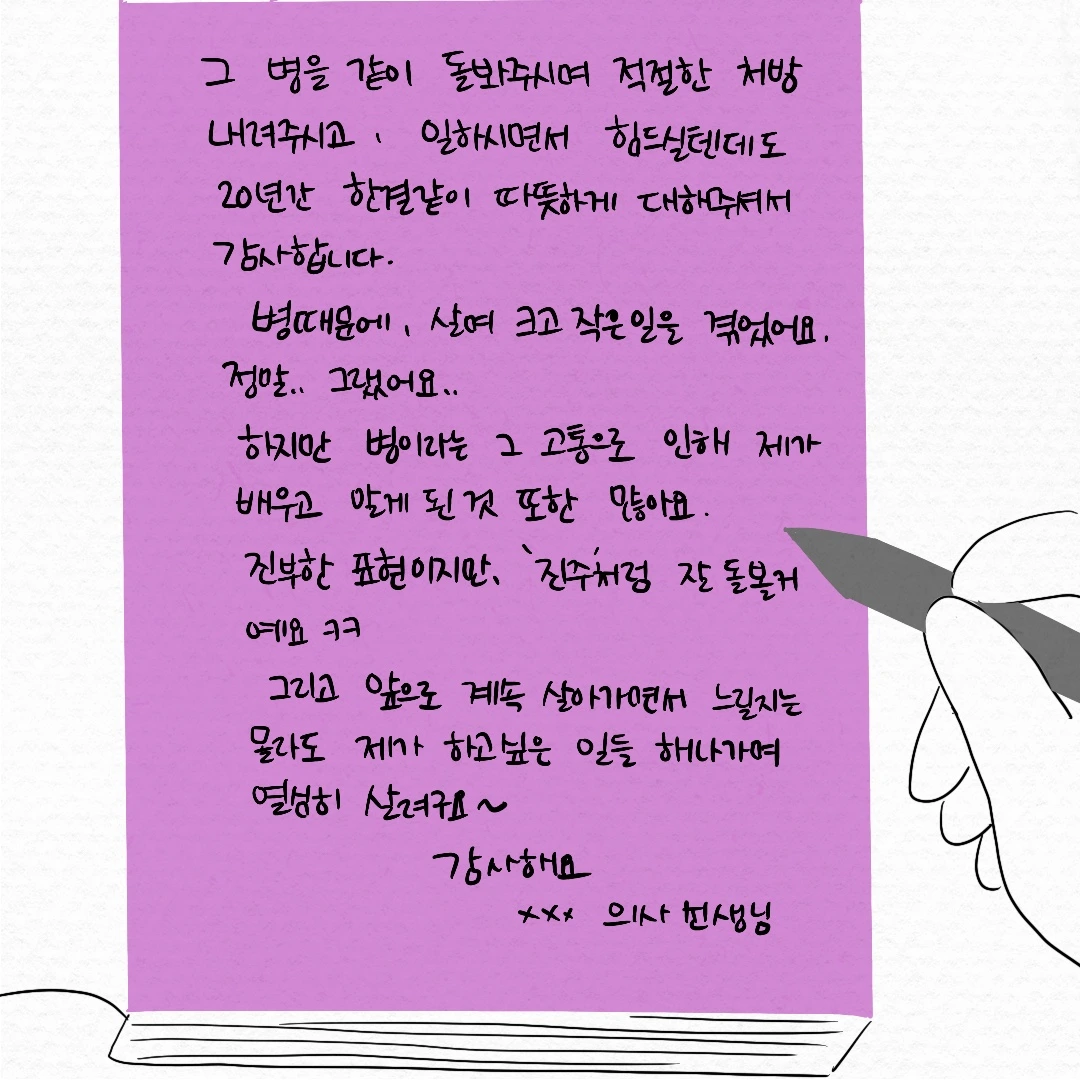 그 병을 같이 돌봐주시며 적절한 처방
내려주시고, 일하시면서 힘드실텐데도
20년간 한결같이 따뜻하게 대해주셔서
감사합니다.
병때문에, 살며 크고 작은일을 겪었어요.
정말.. 그랬어요..
하지만 병이라는 그 고통으로 인해 제가
배우고 알게 된 것 또한 많아요.
진부한 표현이지만, '진주'처럼 잘 돌볼거
예요 ㅋㅋ
그리고 앞으로 계속 살아가면서 느릴지는
몰라도 제가 하고싶은 일들 해나가며
열심히 살려구요~
감사해요
xxx 의사 선생님